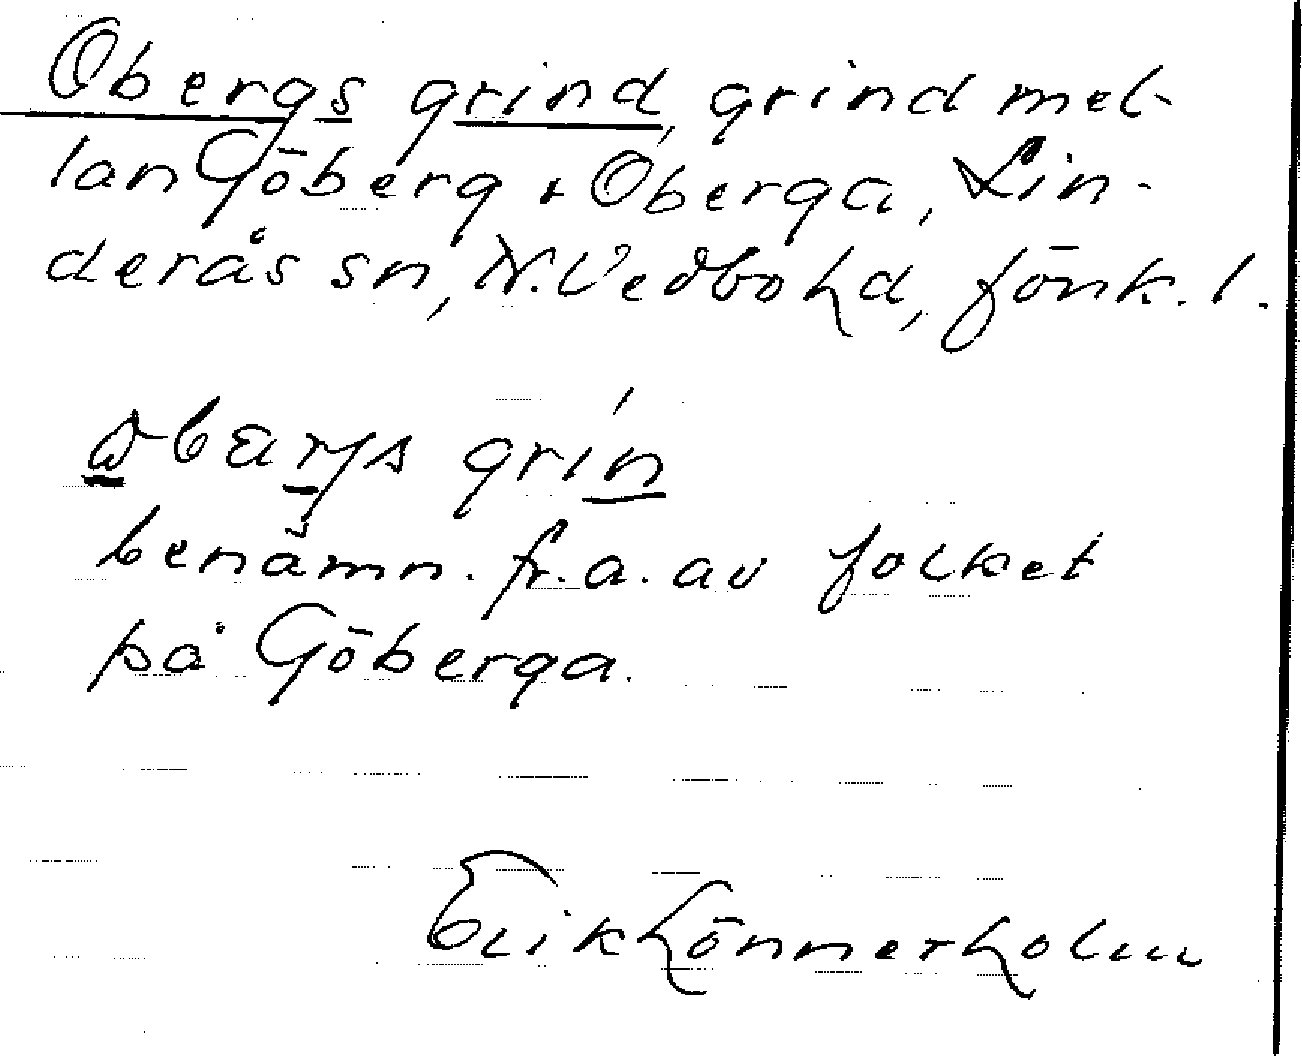 Obergs grind, grind mel-
lan Göberg + Oberga, Lin-
derås sn, N. Vedbo hd, Jönk. l.
benämn. fr. a. av folket
på Göberga.
Erik Hönnerholm